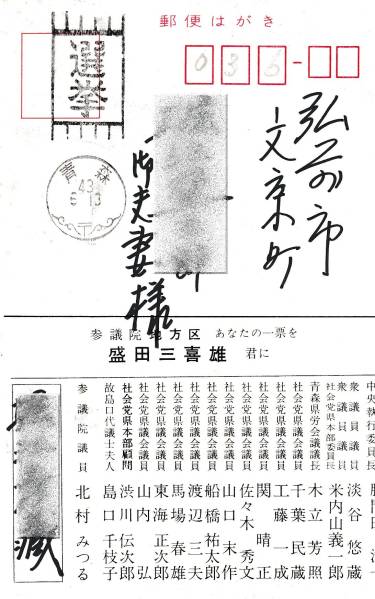 郵便はがき
選挙
036
青森
43
6 13
弘前市
文京町
御夫妻様
参議院地方区 あなたの一票を
盛田三喜雄 君に
中央執行委員長
衆議院議員 淡谷 悠蔵
衆議院議員
社会党県本部委員長 米内山義一郎
青森県労会議議長 木立 芳照
社会党県議会議員 千葉 民蔵
社会党県議会議員 工藤 一成
社会党県議会議員 関 晴正
社会党県議会議員 佐々木秀文
社会党県議会議員 山口 末作
社会党県議会議員 船橋 祐太郎
社会党県議会議員 渡辺 三夫
社会党県議会議員 馬場 春雄
社会党県議会議員 東海 正次郎
社会党県議会議員 山内 弘
社会党県本部顧問 渋川 伝次郎
故島口代議士夫人 島口 千枝子
参議院議員 北村 みつる